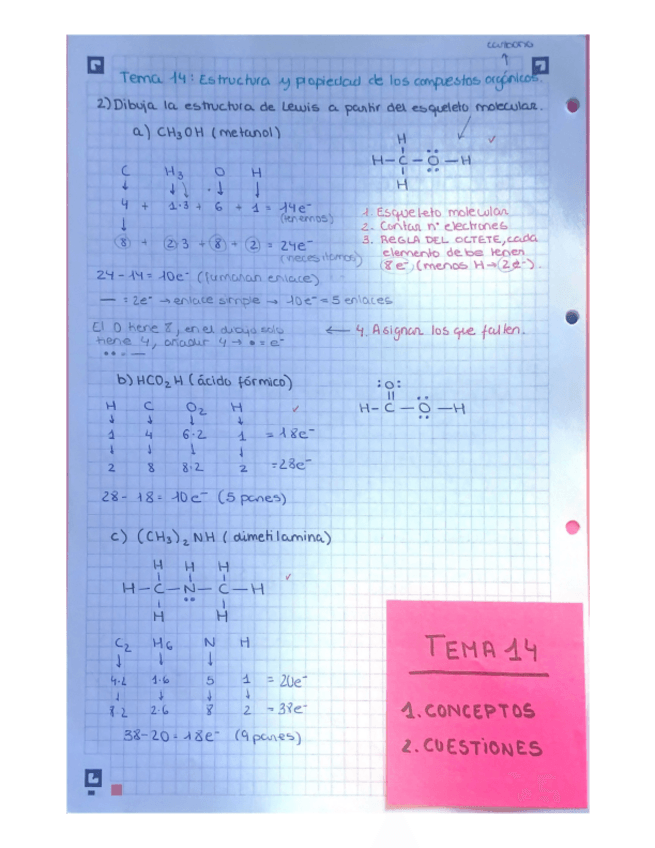 carbono
↑
Tema 14: Estructura y propiedad de los compuestos orgánicos.
2) Dibuja la estructura de Lewis a partir del esqueleto molecular.
a) CH3OH (metanol)
H
H-C-O-H
H
C H3 O H
4 + 1·3 + 6 + 1 = 14e-
(tenemos)
8 + 2·3 + 8 + 2 = 24e-
(necesitamos)
24-14 = 10e- (formaran enlace)
— = 2e- → enlace simple → 10e- = 5 enlaces
1. Esqueleto molecular
2. Contar nº electrones
3. REGLA DEL OCTETE, cada
elemento debe tener
8e- (menos H→2e-).
El O tiene 8, en el dibujo solo
tiene 4, añadir 4 → • = e-
•• = —
← 4. Asignar los que falten.
b) HCO2H (ácido fórmico)
:O:
H-C-O-H
H C O2 H
1 4 6·2 1 = 18e-
2 8 8·2 2 = 28e-
28-18 = 10e- (5 pares)
c) (CH3)2NH (dimetilamina)
H H H
H-C-N-C-H
H H
C2 H6 N H
4·2 1·6 5 1 = 20e-
8·2 2·6 8 2 = 38e-
38-20 = 18e- (9 pares)
TEMA 14
1. CONCEPTOS
2. CUESTIONES